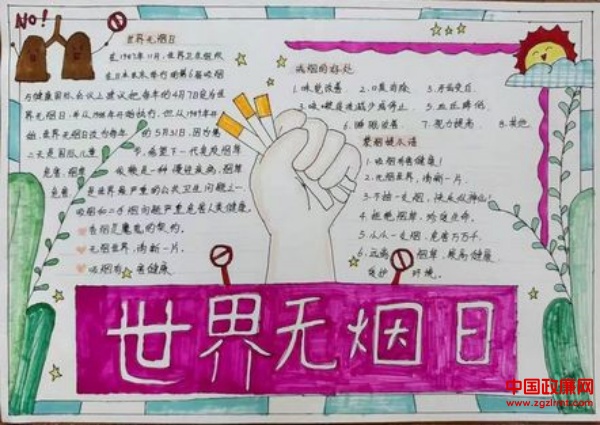 NO!
世界无烟日
在1987年11月,世界卫生组织
在日本东京举行的第6届吸烟
与健康国际会议上建议把每年的4月7日定为世
界无烟日,并从1988年开始执行,但从1989年开
始,世界无烟日改为每年的5月31日,因为第
二天是国际儿童节,希望下一代免受烟草
危害。烟草依赖是一种慢性疾病,烟草
危害是世界最严重的公共卫生问题之一,
吸烟和二手烟问题严重危害人类健康。
香烟是魔鬼的契约。
无烟世界,清新一片。
吸烟有害健康
戒烟的好处
1.味觉改善
2.口臭消除
3.牙齿变白
4.咳嗽
减少或停止
5.血压降低
6.睡眠改善
7.视力提高
8.其他
禁烟提示语
1.吸烟有害健康!
2.无烟世界,清新一片。
3.不抽一支烟,快乐似神仙!
4.拒绝烟草,珍爱生命。
5.小小一支烟,危害万万千。
6.远离烟草,崇尚健康
爱护环境。
世界无烟日
中国政廉网
www.zgzlnet.com